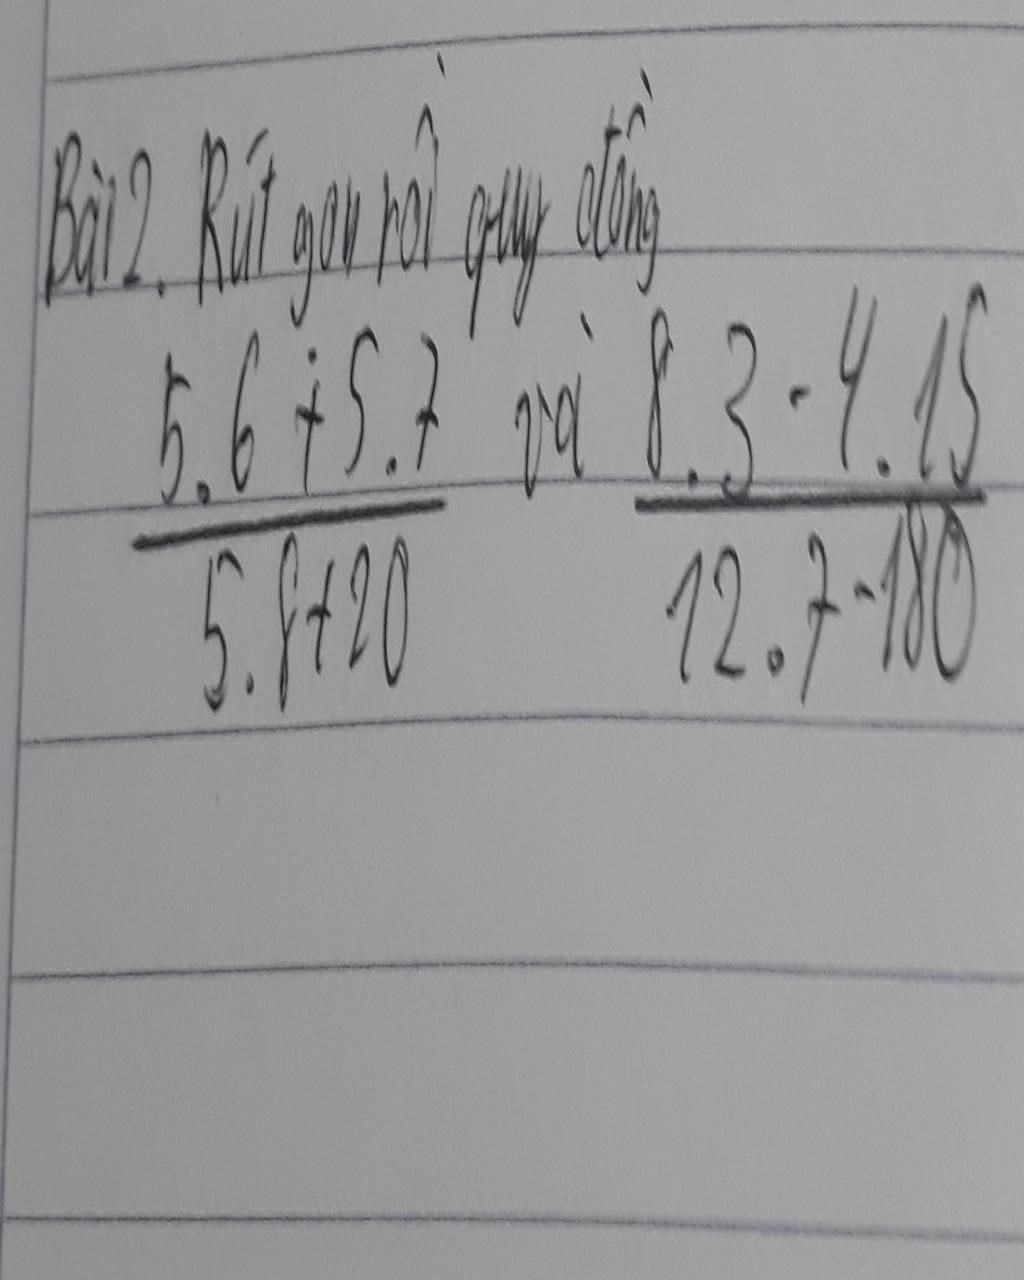 Bài 2. Rút gọn rồi quy đồng
5.6+5.7 và 8.3-4.15
5.8+20 12.7-180